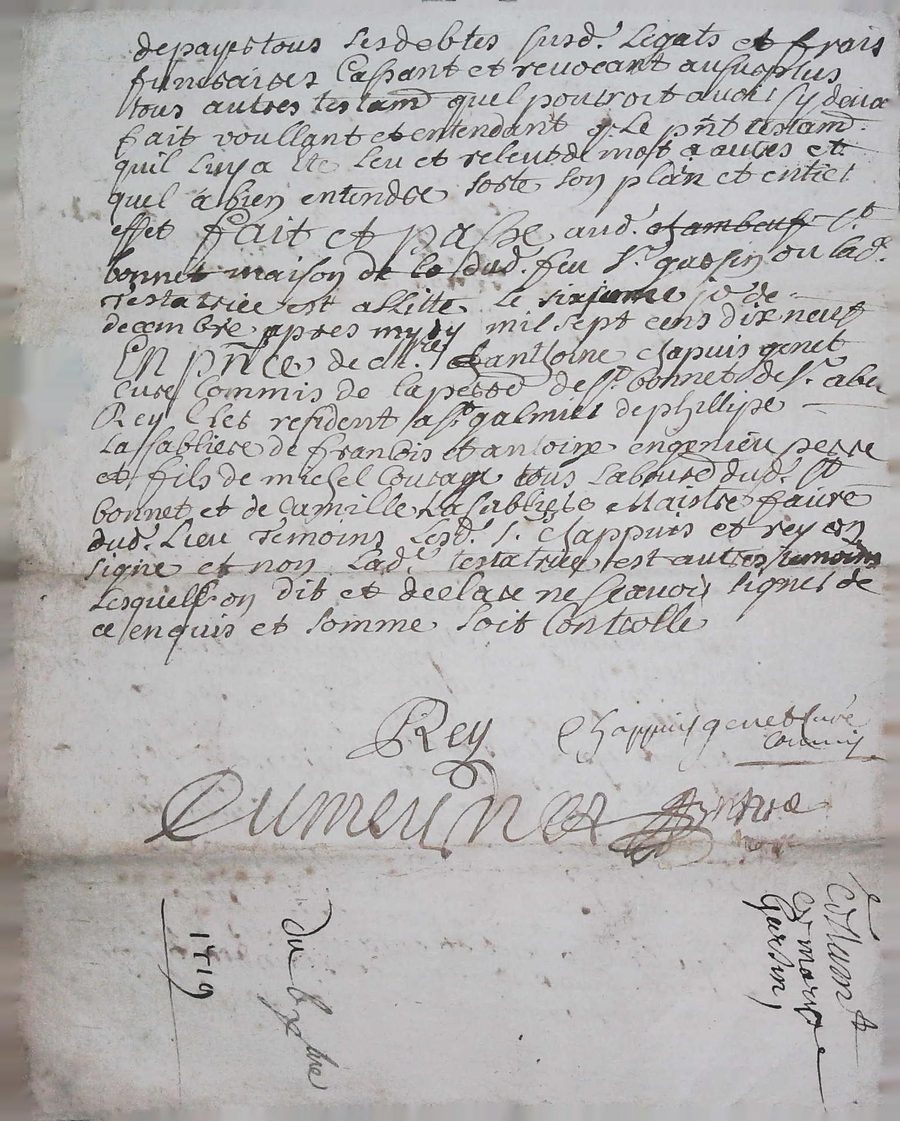 de payer tous ses debtes susd. Legats et frais
funeraires Cassant et revocant au surplus
tous autres testamt quel pourroit avoir cy devt
fait voullant et entendant q. Le pñt testamt.
quil Luy a ete Leu et releut de mot a autre et
quel à bien entendre sorte son plain et entier
effet fait et passe aud. chambeuf St
bonnet maison de dud. feu Sr. ou lad.
Testatrice est allitte Le sixieme jor de
decembre apres mydy mil sept cens dix neuf
En pñce de mre anthoine chapuis genet
Cure Commis de la psse de St. bonnet de Sr.
Rey resident a St galmier de phillipe
La sabliere de francois et antoine pere
et fils de michel Courage tous Laboureurs dud. St
bonnet et de Camille Lasabliere Maistre faure
dud. Lieu Temoins Lesd. Sr. Chappuis et rey on
signe et non Lad. testatrice est autres temoins
Lesquels on dit et declare ne scavoir signer de
ce enquis et somme soit Controlle
Rey
Chappuis genet curé
Commis

1719
du Xbre